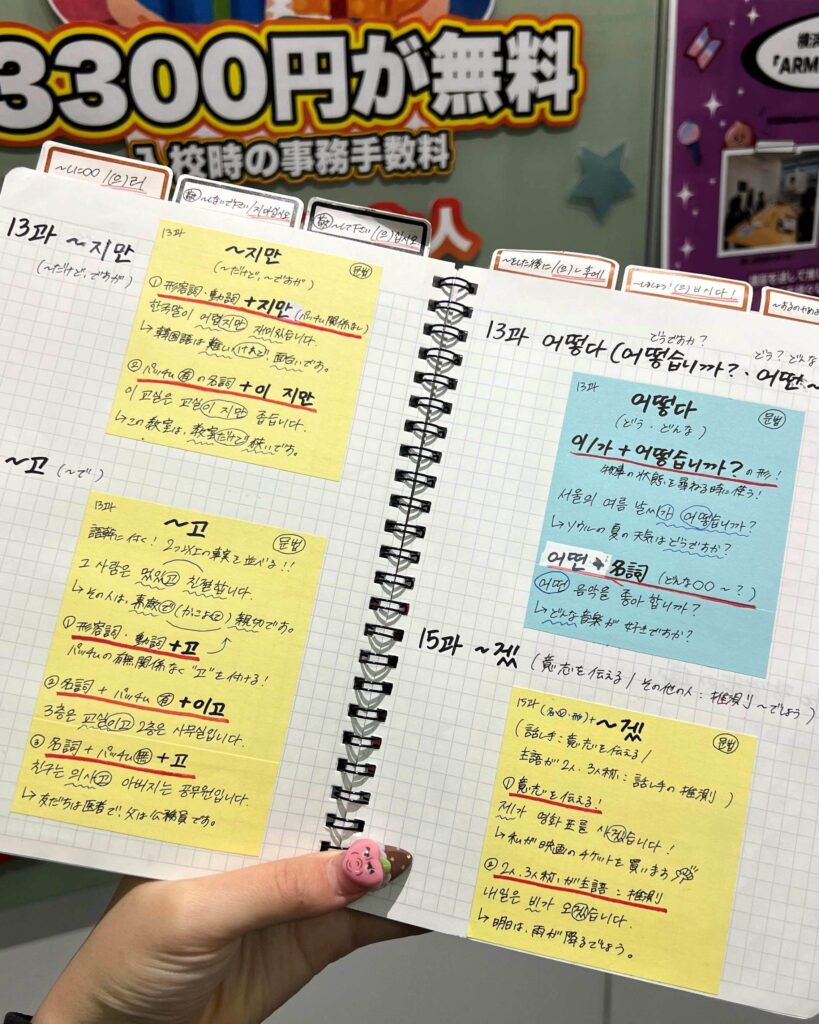 3300円が無料
入校時の事務手数料
人
横浜
「ARM
~しに○○/(으)러
~しないで下さい/지 마십시오
~して下さい/(으)십시오
~した後に/(으)ㄴ 후에
~しましょう!(으)ㅂ시다!
13과 ~지만
(~だけど,ですが)
13과
~지만
(~だけど,~ですが)
文法
①形容詞・動詞+지만(パッチム関係なし)
한국말이 어렵지만 재미있습니다.
↳韓国語は難しいけれど、面白いです。
②パッチム有の名詞+이 지만
이 교실은 교실이 지만 좁습니다.
↳この教室は、教室だけど狭いです。
~고 (~で・)
13과
~고
文法
語幹に付く!2つ以上の事実を並べる!!
그 사람은 멌있고 친절합니다.
↳その人は、素敵で(かっこよく)親切です。
①形容詞・動詞+고
パッチムの有無関係なく"고"を付ける!
②名詞+パッチム有+이고
3층은 교실이고 2층은 사무실입니다.
③名詞+パッチム無+고
친구는 의사고 아버지는 공무원입니다.
↳友だちは医者で、父は公務員です。
どうですか?
どう?どんな
13과 어떻다(어떻습니까?・어떤~
13과
어떻다
(どう・どんな)
文法
이/가+어떻습니까?の形!
物事の状態を尋ねる時に使う!
서울의 여름 날씨가 어떻습니까?
↳ソウルの夏の天気はどうですか?
어떤+名詞(どんな○○~?)
어떤 음악을 좋아 합니까?
↳どんな音楽が好きですか?
15과 ~겠(意志を伝える/その他の人:推測~でしょう)
15과
~겠
文法
(話し手:意志を伝える/
主語が2人、3人称:話し手の推測)
①意志を伝える!
제가 영화 표를 사겠습니다!
↳私が映画のチケットを買います
②2人、3人称が主語:推測
내일은 비가 오겠습니다.
↳明日は、雨が降るでしょう。